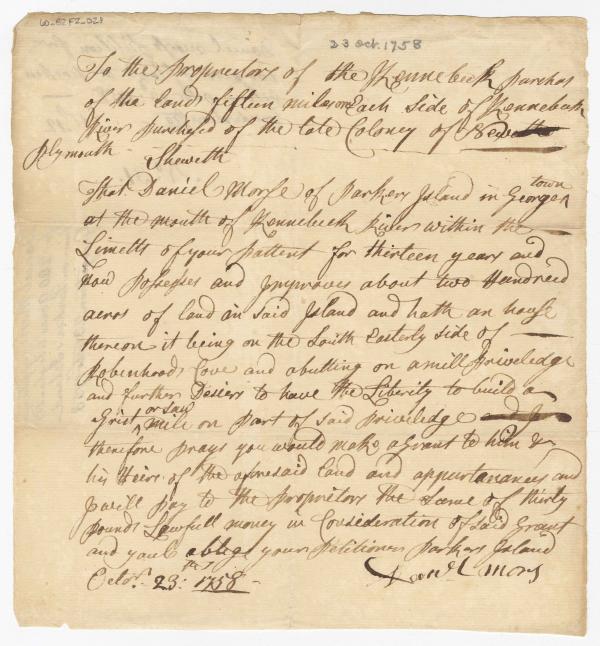 60-52F2-021
23 Oct. 1758
To the Proprietors of the Kennebeck Purchas
of the lands fifteen miles on Each side of Kennebeck
River purchased of the late Colony of
Plymouth - Sheweth
That Daniel Morse of Parkers Island in Georgetown
at the mouth of Kennebeck River within the
Limetts of your Pattent for thirteen years and
Now Possesses and Improves about two Hundreed
acres of land on said Island and hath an house
thereon it being on the South Easterly side of
Robinhoods Cove and abutting on a mill Priveledge
and further Desiers to have the Liberty to build a
Grist or Saw Mill on part of said Priviledge
therefore prays you would make a Grant to him &
his Heirs of the aforesaid land and appurtanances and
will pay to the Proprietors the Some of thirty
Pounds Lawfull money in Consideration of said Grant
and youl oblige your Petitioner Parkers Island
Octor. 23: 1758 -
Mors